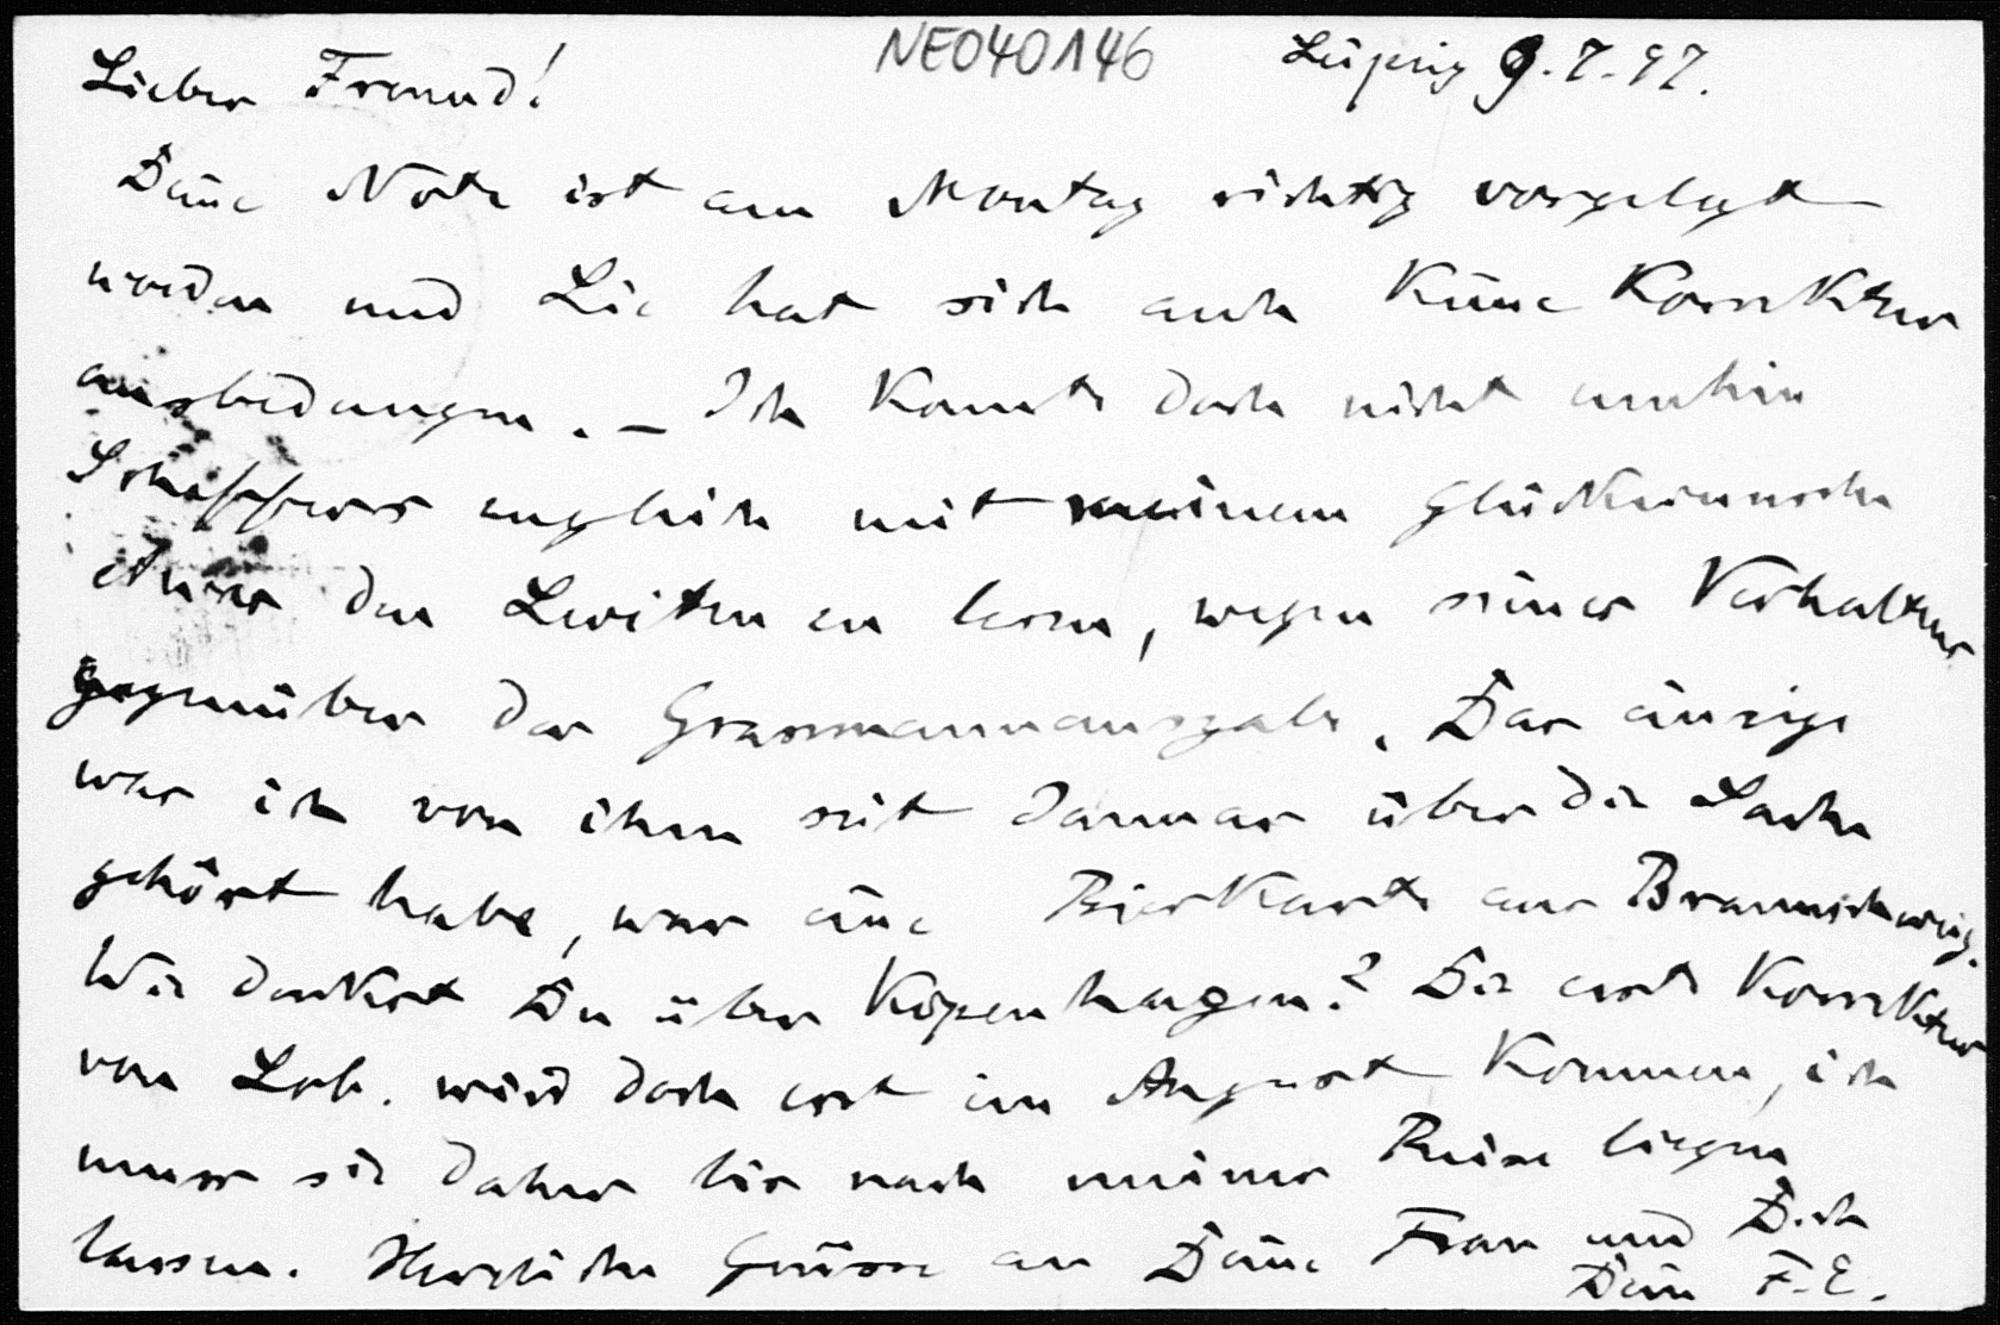 NE040146
Leipzig 9.7.97.
Lieber Freund!
Deine Note ist am Montag richtig vorgelegt
worden und Lie hat sich auch keine Korrektur
ausbedungen. – Ich konnte doch nicht umhin
Scheffers zugleich mit meinem Glückwunsche
den Leviten zu lesen, wegen seines Verhaltens
gegenüber der Grassmannausgabe. Das einzige
was ich von ihm seit Januar über die Sache
gehört habe, war eine Bierkarte aus Braunschweig.
Wie denkst Du über Kopenhagen? Die erste Korrektur
von Lob. wird doch erst im August kommen, ich
muss sie daher bis nach meiner Reise liegen
lassen. Herzliche Grüsse an Deine Frau und Dich
Dein F.E.